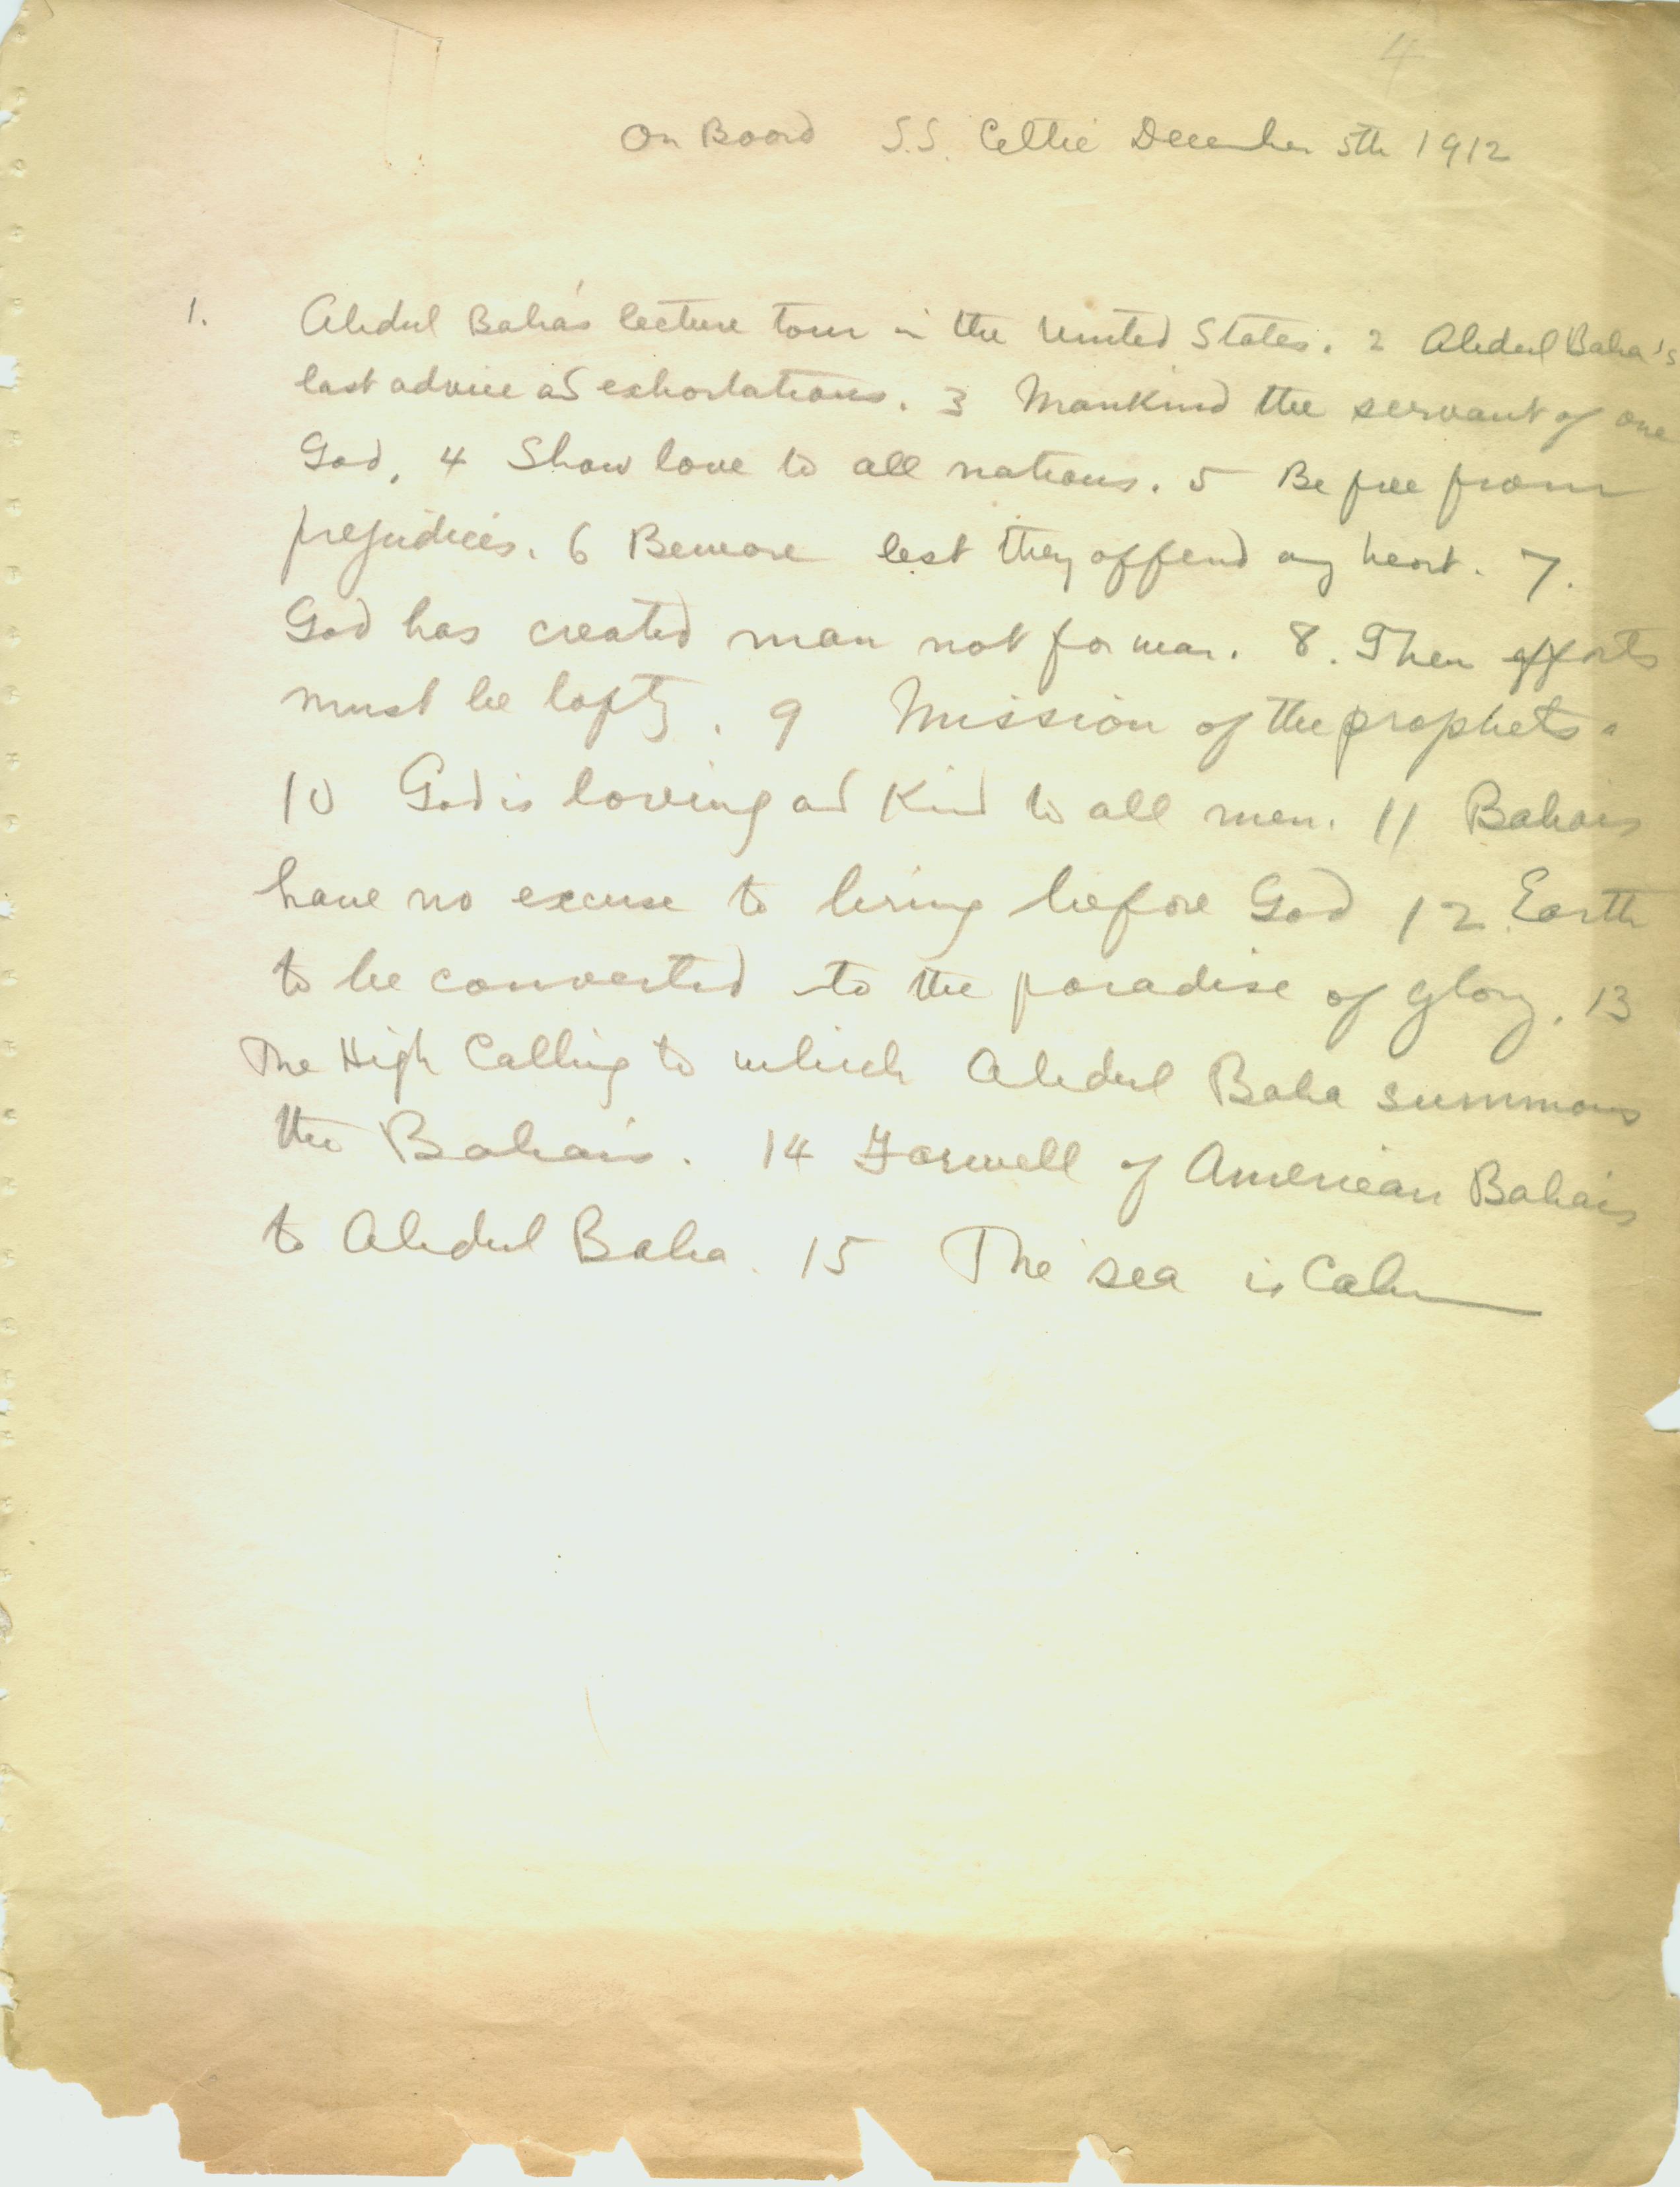 4
On Board S.S. Celtic December 5th 1912
1. Abdul Baha's lecture tour in the United States. 2 Abdul Baha's
last advice and exhortations. 3 Mankind the servant of one
God. 4 Show love to all nations. 5 Be free from
prejudices. 6 Beware lest they offend any heart. 7.
God has created man not for war. 8. Their efforts
must be lofty. 9 Mission of the prophets.
10 God is loving and Kind to all men. 11 Bahais
have no excuse to bring before God 12. Earth
to be converted to the paradise of glory. 13
The High Calling to which Abdul Baha summons
the Bahais. 14 Farwell of American Bahais
to Abdul Baha. 15 The sea is Calm